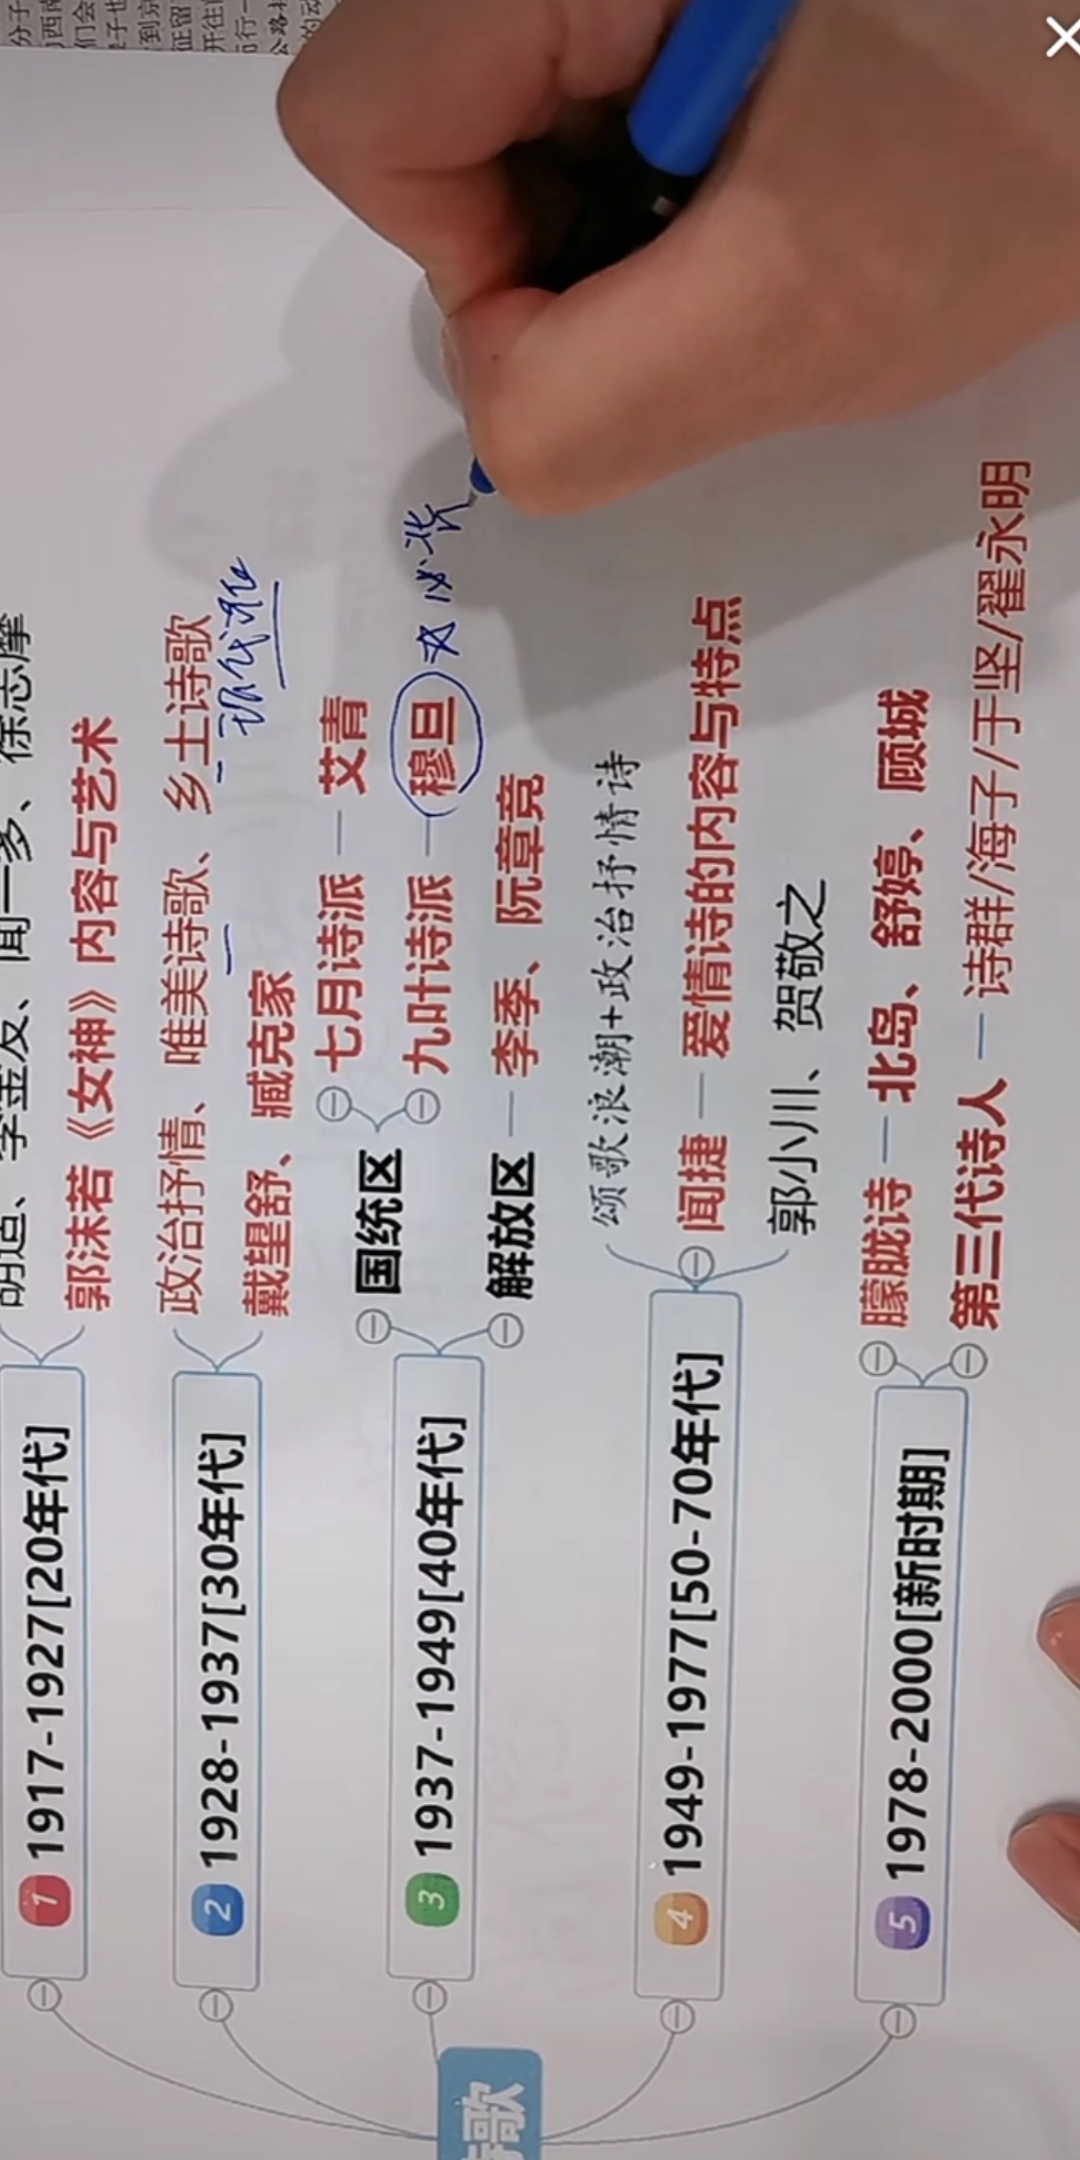 1 1917-1927[20年代]
胡适、李金发、闻一多、徐志摩
郭沫若《女神》内容与艺术
2 1928-1937[30年代]
政治抒情、唯美诗歌、乡土诗歌
现代派
戴望舒、臧克家
3 1937-1949[40年代]
国统区
七月诗派 — 艾青
九叶诗派 — 穆旦
解放区 — 李季、阮章竞
4 1949-1977[50-70年代]
颂歌浪潮+政治抒情诗
闻捷 — 爱情诗的内容与特点
郭小川、贺敬之
5 1978-2000[新时期]
朦胧诗 — 北岛、舒婷、顾城
第三代诗人 — 诗群/海子/于坚/翟永明
歌